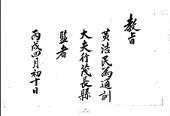 教旨
黃浩民為通訓
大夫行茂長縣
監者
丙戌四月初十日